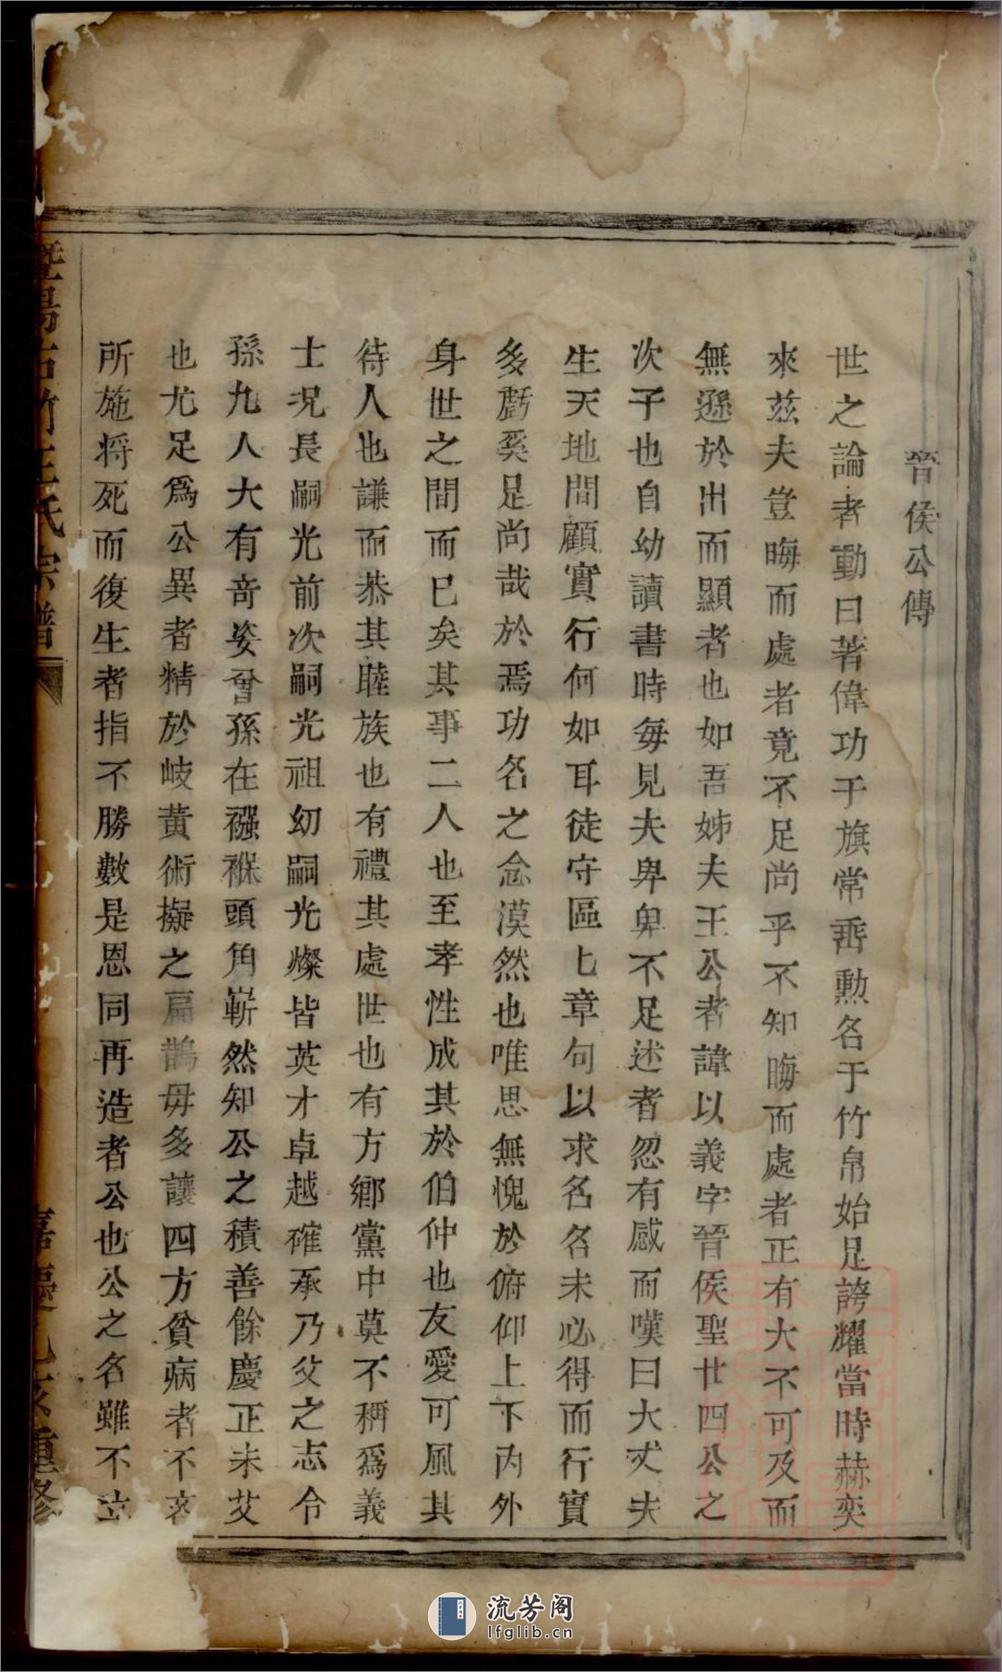 晉侯公傳
世之論者動曰著偉功于旗常垂勲名于竹帛始足誇耀當時赫奕
來茲夫豈晦而處者竟不足尚乎不知晦而處者正有大不可及而
無遜於出而顯者也如吾姊夫王公者諱以義字晉侯聖廿四公之
次子也自幼讀書時每見夫卑卑不足述者忽有感而嘆曰大丈夫
生天地間顧實行何如耳徒守區七章句以求名名未必得而行實
多虧奚足尚哉於焉功名之念漠然也唯思無愧於俯仰上下內外
身世之間而已矣其事二人也至孝性成其於伯仲也友愛可風其
待人也謙而恭其睦族也有禮其處世也有方鄉黨中莫不稱爲義
士况長嗣光前次嗣光祖幼嗣光燦皆英才卓越確承乃父之志令
孫九人大有奇姿曾孫在襁褓頭角嶄然知公之積善餘慶正未艾
也尤足爲公異者精於岐黃術擬之扁鵲毋多讓四方貧病者不
所施将死而復生者指不勝數是恩同再造者公也公之名雖不立
暨陽石竹王氏宗譜
嘉慶 重修
流芳阁
lfglib.cn